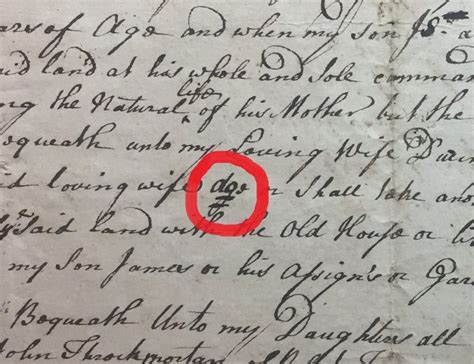 ars of Age and when my Son Js. a
aid land at his whole and Sole comma
ng the Natural life of his Mother but the
Bequeath unto my Loving Wife Durin
id loving wife doe or Shall take ano
ye Said land with the Old House or li
my Son James or his Assign's or Gar
Bequeath Unto my Daughters all
John Throckmortan